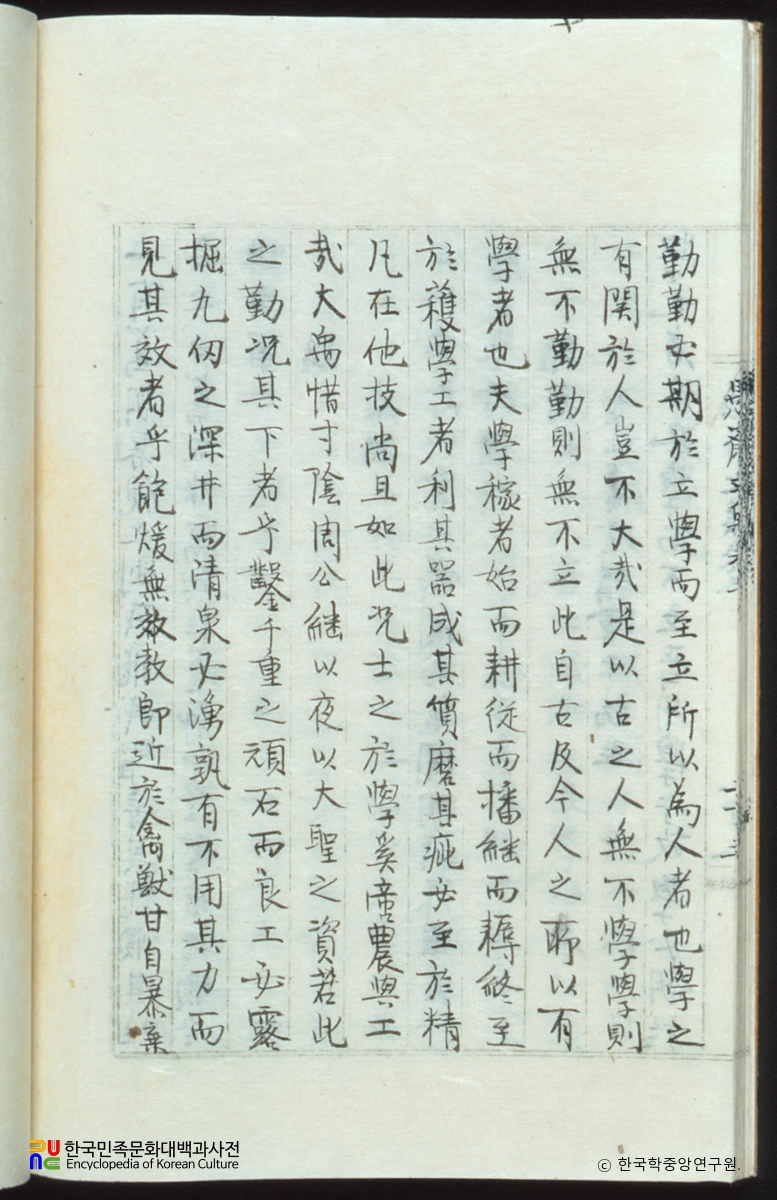 勤勤必期於立學而至立所以為人者也學之
有関於人豈不大哉是以古之人無不學學則
無不勤勤則無不立此自古及今人之所以有
學者也夫學稼者始而耕從而播継而耨終至
於穫學工者利其器成其質磨其疵必至於精
凡在他技尚且如此况士之於學奚啻農與工
哉大禹惜寸陰周公継以夜以大聖之資若此
之勤况其下者乎鑿千重之頑石而良工必露
掘九仞之深井而清泉必湧孰有不用其力而
見其效者乎飽煖無教即近於禽獸甘自暴棄
한국민족문화대백과사전
Encyclopedia of Korean Culture
ⓒ 한국학중앙연구원.